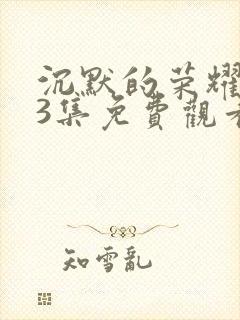 沉默的荣耀
3集免費觀看
知雪亂